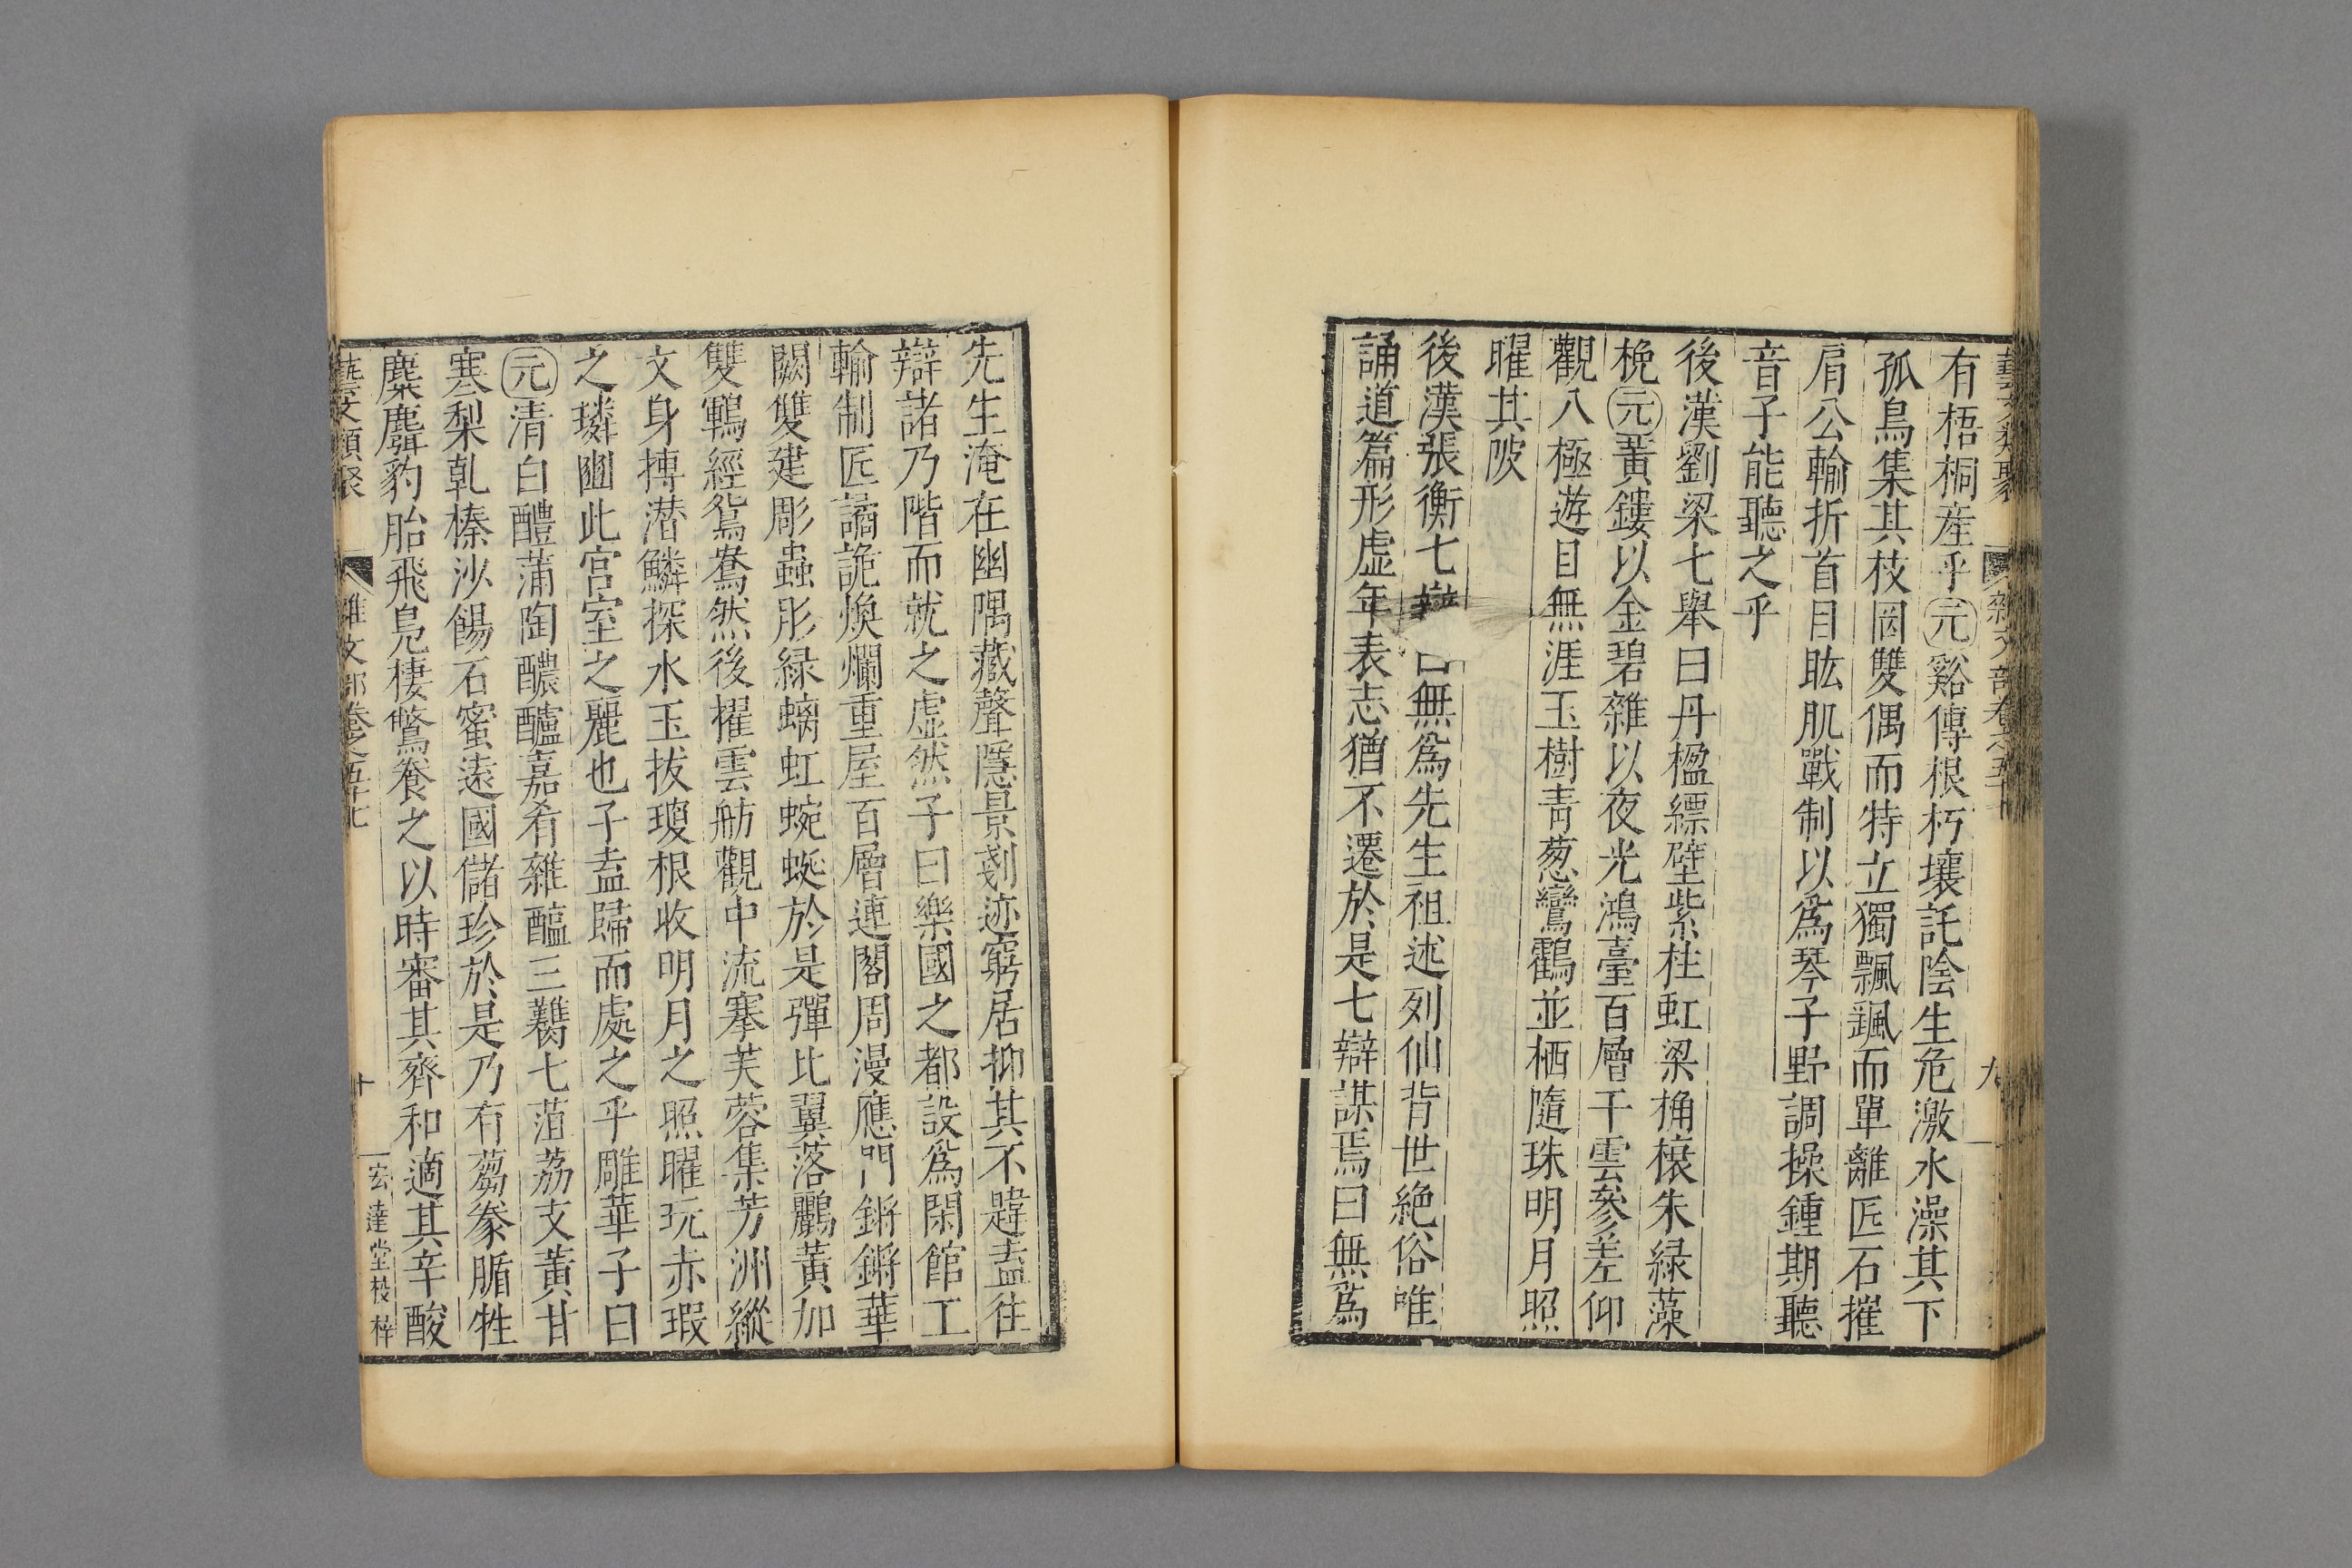 藝文類聚 雜文部卷之五十七 九
有梧桐産乎元谿傳根朽壤託陰生危激水澡其下
孤鳥集其枝罔雙偶而特立獨飄颻而單離匠石摧
肩公輸折首目眩肌戰制以為琴子野調操鍾期聽
音子能聽之乎
後漢劉梁七舉曰丹楹縹壁紫柱虹梁桷榱朱緑藻
㮓元黃鏤以金碧雜以夜光鴻臺百層干雲參差仰
觀八極遊目無涯玉樹青葱鸞鸖並栖隨珠明月照
曜其陂
後漢張衡七辯曰無為先生祖述列仙背世絶俗唯
誦道篇形虛年衰志猶不遷於是七辯謀焉曰無為
先生淹在幽隅藏聲隱景剗迹窮居抑其不韙盍往
辯諸乃階而就之虛然子曰樂國之都設為閑館工
輸制匠譎詭煥爛重屋百層連閣周漫應門鏘鏘華
闕雙建彫蟲肜緑螭虹蜿蜒於是彈比翼落鸝黃加
雙鶤經鴛鴦然後擢雲舫觀中流搴芙蓉集芳洲縱
文身搏潛鱗探水玉拔瓊根收明月之照曜玩赤瑕
之璘豳此宮室之麗也子盍歸而處之乎雕華子曰
元清白醴蒲陶醲醽嘉肴雜醢三臡七菹荔支黃甘
寒梨乹榛沙餳石蜜遠國儲珍於是乃有蒭豢腯牲
麋麛豹胎飛鳧棲鷩養之以時審其齊和適其辛酸
藝文類聚 雜文部卷之五十七 十 宏達堂校梓